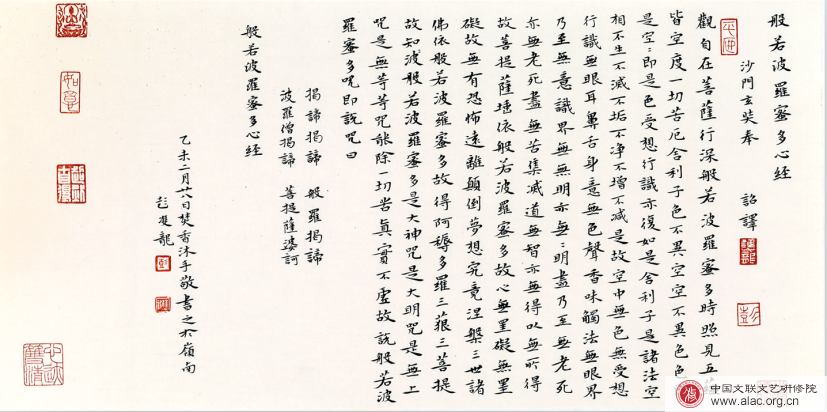 般若波羅蜜多心経
沙門玄奘奉 詔譯
觀自在菩薩行深般若波羅蜜多時照見五蘊
皆空度一切苦厄舍利子色不異空空不異色色
是空:即是色受想行識亦復如是舍利子是諸法空
相不生不滅不垢不净不增不减是故空中無色無受想
行識無眼耳鼻舌身意無色聲香味觸法無眼界
乃至無意識界無無明亦無:明盡乃至無老死
亦無老死盡無苦集滅道無智亦無得以無所得
故菩提薩埵依般若波羅蜜多故心無罣礙無罣
礙故無有恐怖遠離顛倒夢想究竟涅槃三世諸
佛依般若波羅蜜多故得阿耨多羅三藐三菩提
故知波般若波羅蜜多是大神咒是大明咒是無上
咒是無等等咒能除一切苦真實不虛故說般若波
羅蜜多咒即說咒曰
揭諦揭諦 般羅揭諦
波羅僧揭諦 菩提薩婆訶
般若波羅蜜多心経
乙未二月廿八日焚香沐手敬書之於嶺南
彭現龍
如意
中国文联文艺研修院
www.alac.org.cn